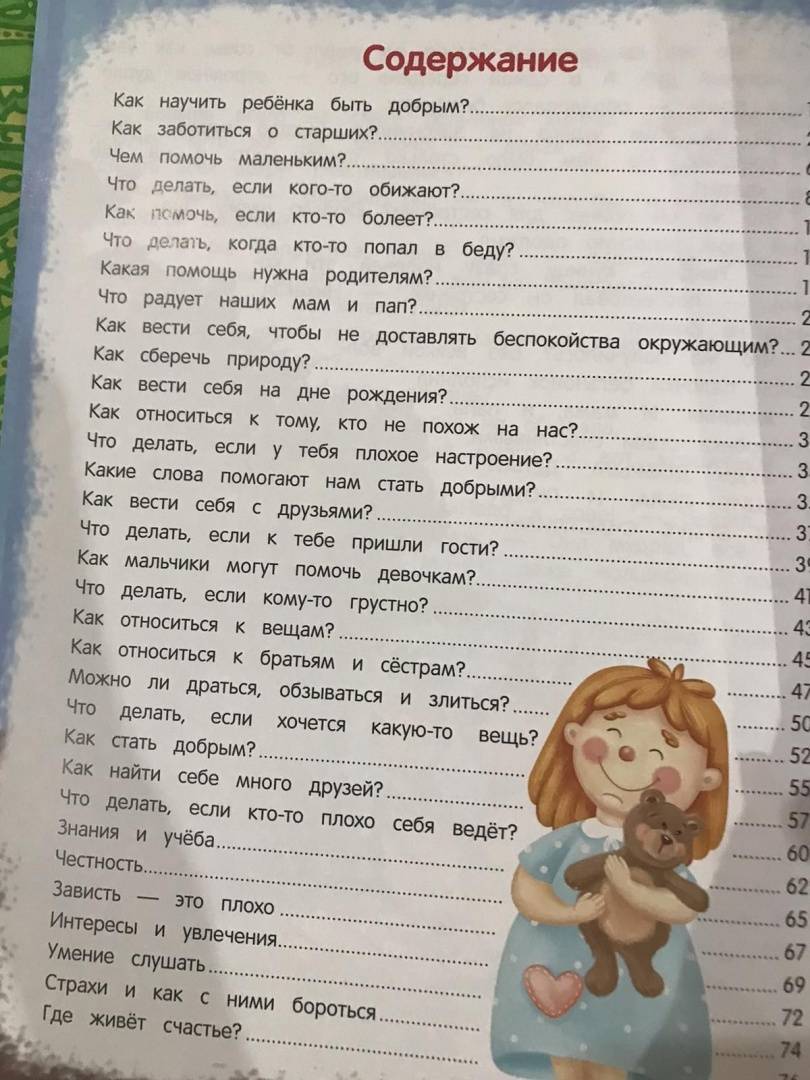 Содержание
Как научить ребёнка быть добрым?
Как заботиться о старших?
Чем помочь маленьким?
Что делать, если кого-то обижают? 8
Как помочь, если кто-то болеет? 1
Что делать, когда кто-то попал в беду? 1
Какая помощь нужна родителям? 1
Что радует наших мам и пап? 2
Как вести себя, чтобы не доставлять беспокойства окружающим?... 2
Как сберечь природу? 2
Как вести себя на дне рождения? 2
Как относиться к тому, кто не похож на нас? 3
Что делать, если у тебя плохое настроение? 3
Какие слова помогают нам стать добрыми? 3
Как вести себя с друзьями? 37
Что делать, если к тебе пришли гости? 39
Как мальчики могут помочь девочкам? 41
Что делать, если кому-то грустно? 43
Как относиться к вещам? 45
Как относиться к братьям и сёстрам? 47
Можно ли драться, обзываться и злиться? 50
Что делать, если хочется какую-то вещь? 52
Как стать добрым? 55
Как найти себе много друзей? 57
Что делать, если кто-то плохо себя ведёт? 60
Знания и учёба 62
Честность 65
Зависть — это плохо 67
Интересы и увлечения 69
Умение слушать 72
Страхи и как с ними бороться 74
Где живёт счастье?